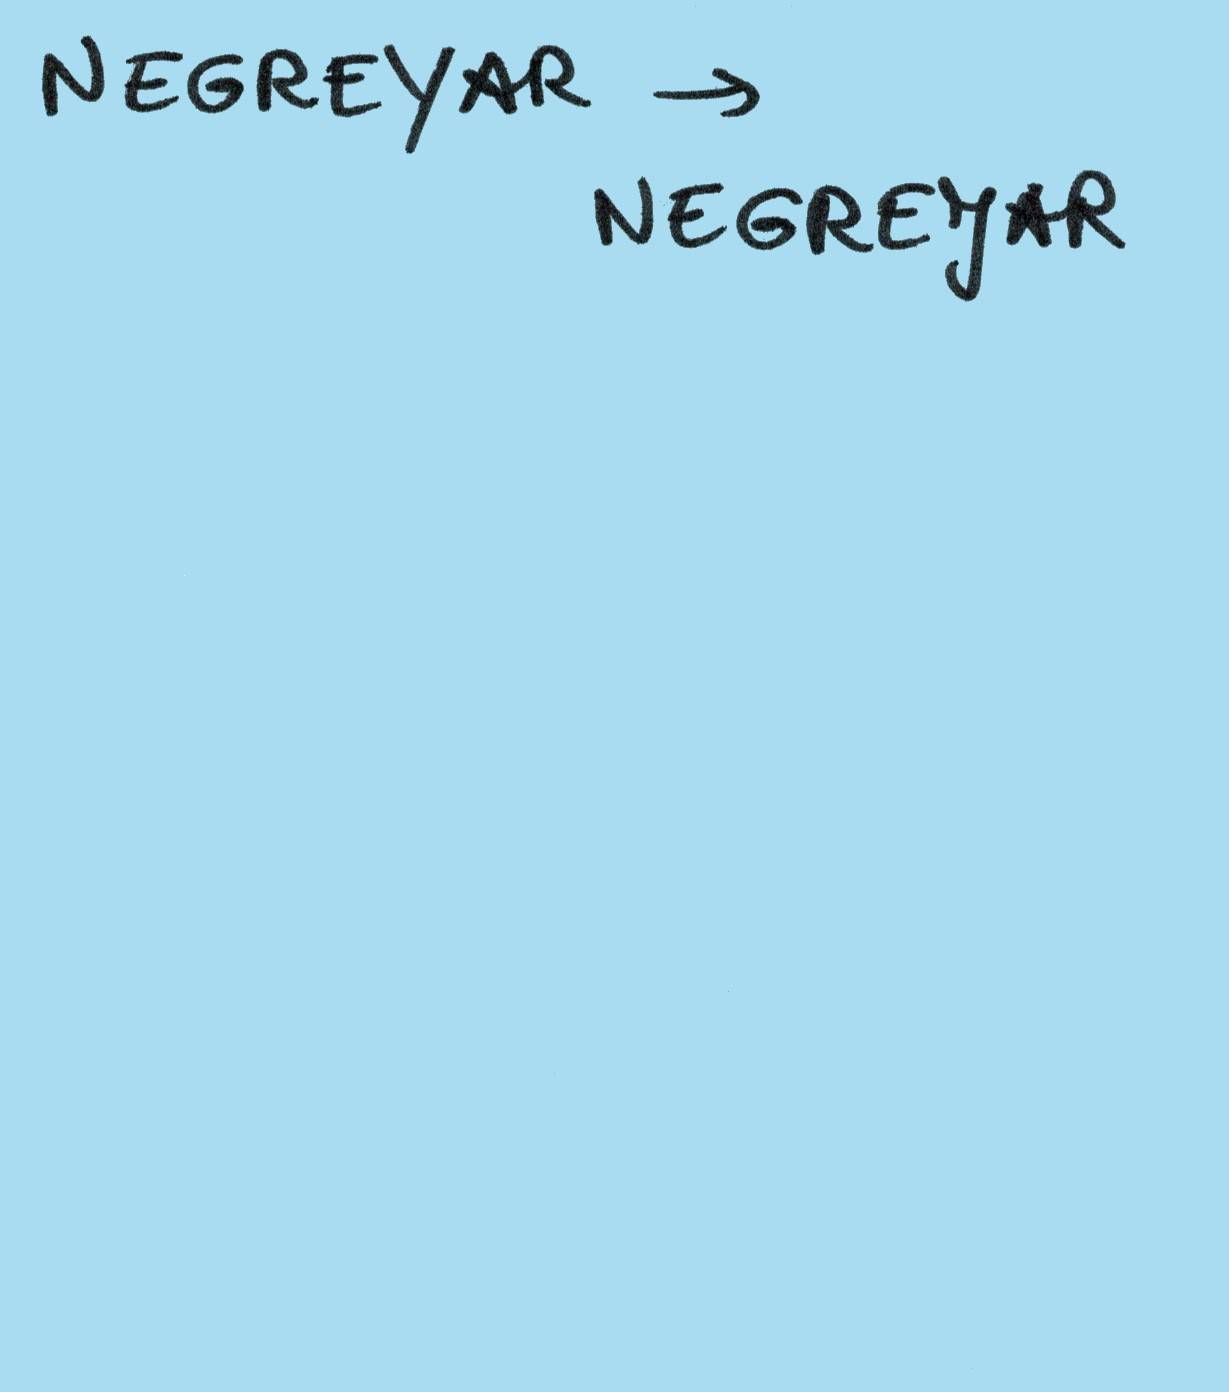 NEGREYAR →
NEGREYAR